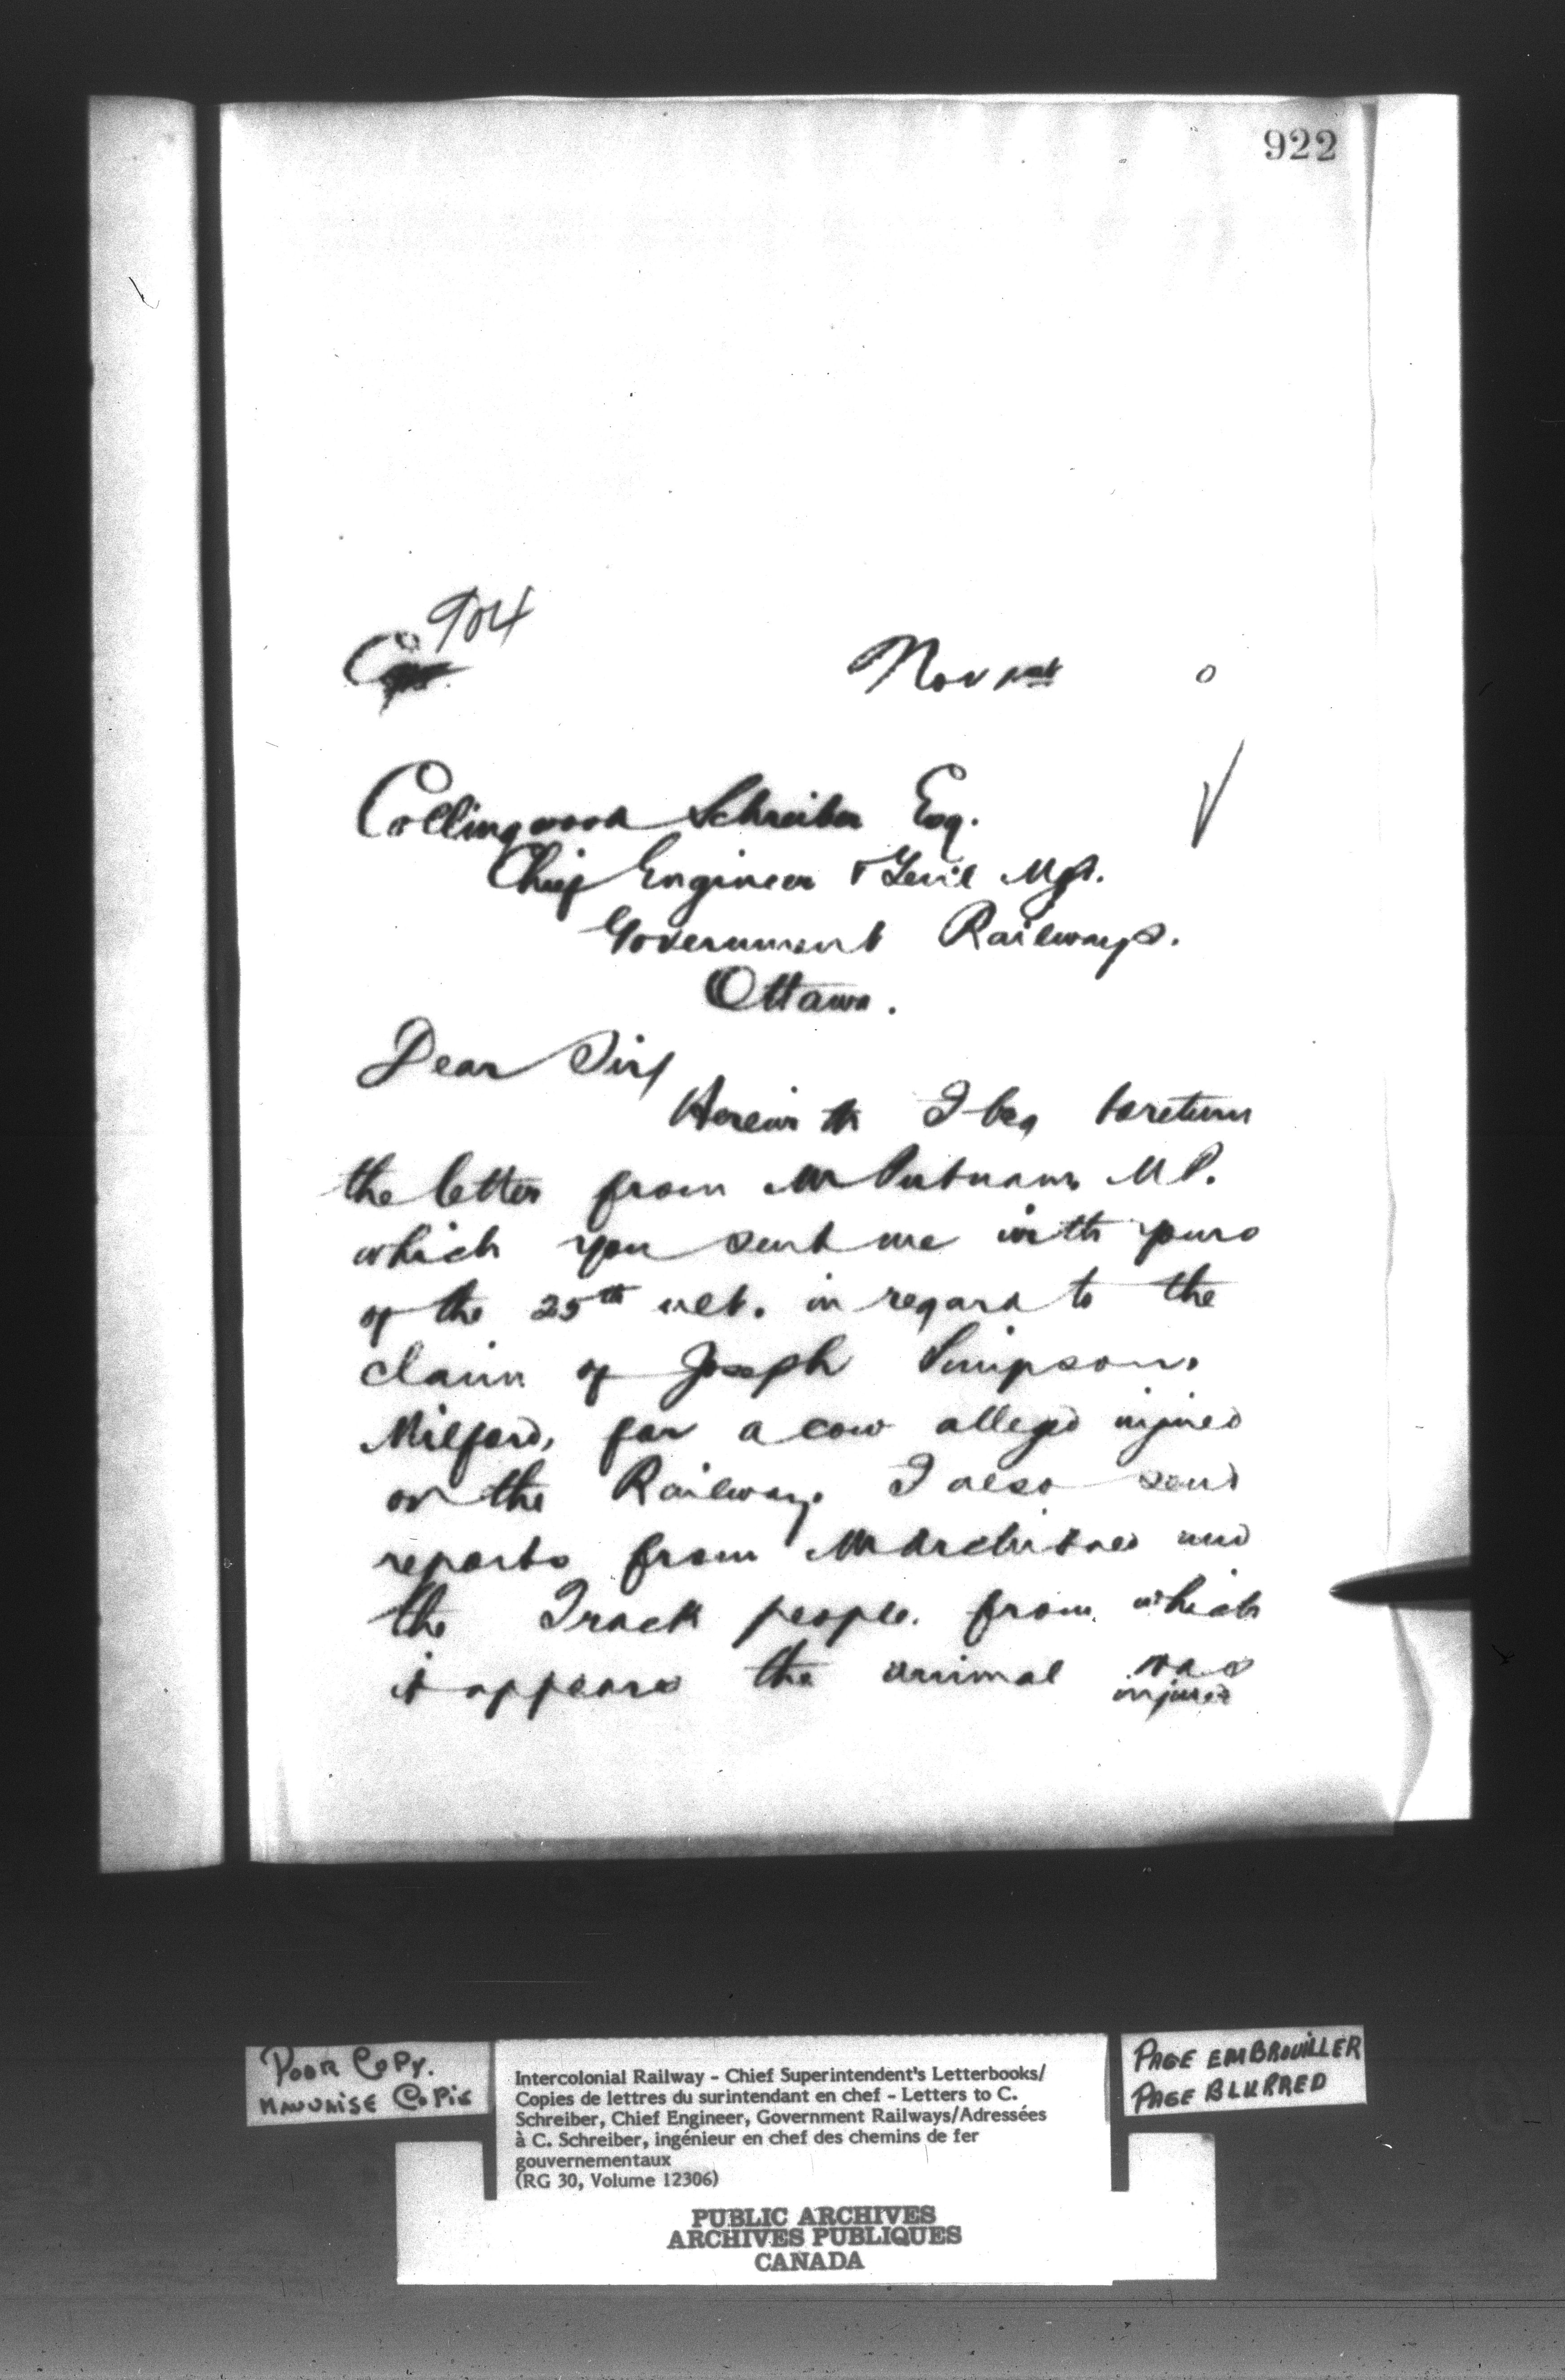 922
904
Nov 1st 0
Collingwood Schreiber Esq.
Chief Engineer & Genl Mgr.
Government Railways.
Ottawa.
Dear Sir/
Herewith I beg to return
the letter from Mr Putnam M P.
which you sent me with yours
of the 25th ult. in regard to the
claim of Joseph Simpson,
Milford, for a cow alleged injured
on the Railway. I also send
reports from Mr Archibald and
the Track people. from which
it appears the animal was
injured
POOR COPY.
MAUVAISE COPIE
Intercolonial Railway - Chief Superintendent's Letterbooks/
Copies de lettres du surintendant en chef - Letters to C.
Schreiber, Chief Engineer, Government Railways/Adressées
à C. Schreiber, ingénieur en chef des chemins de fer
gouvernementaux
(RG 30, Volume 12306)
PAGE EMBROUILLER
PAGE BLURRED
PUBLIC ARCHIVES
ARCHIVES PUBLIQUES
CANADA